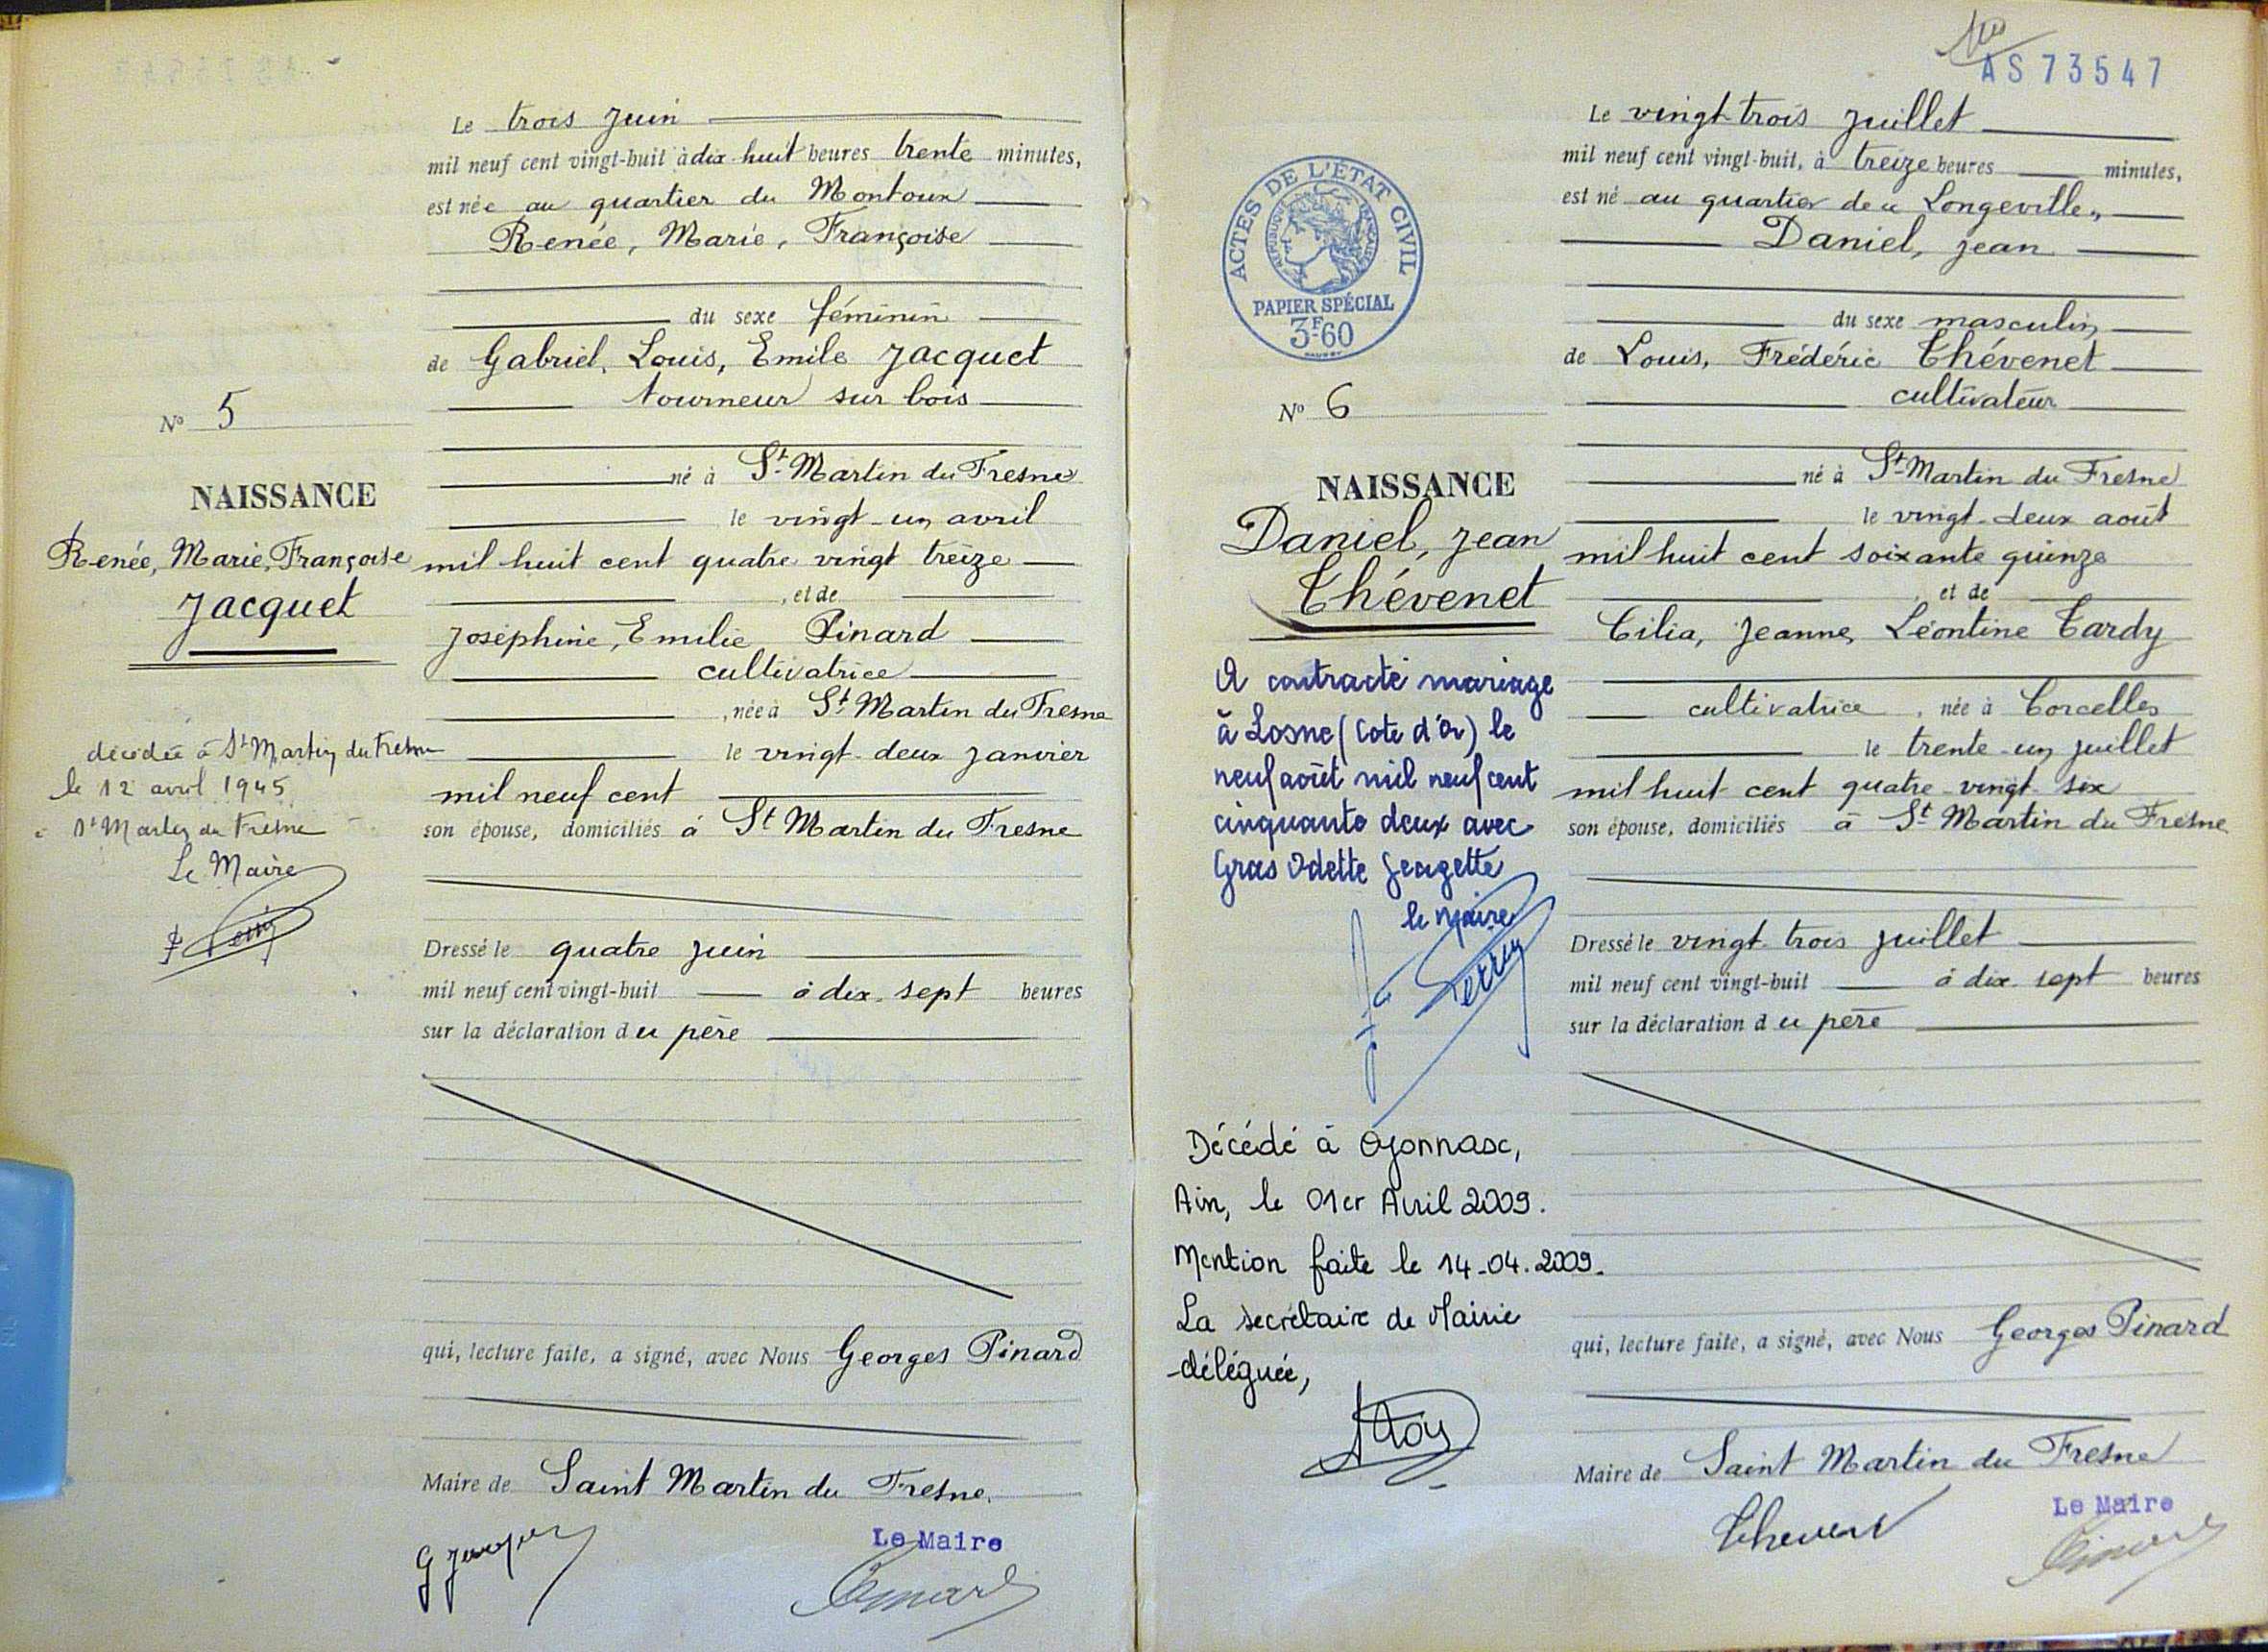 Le trois Juin
mil neuf cent vingt-huit à dix huit heures trente minutes,
est née au quartier du Montoux
Renée, Marie, Françoise
du sexe féminin
de Gabriel, Louis, Emile Jacquet
tourneur sur bois
né à St Martin du Fresne
le vingt-un avril
mil huit cent quatre vingt treize
, et de
Joséphine, Emilie Pinard
cultivatrice
, née à St Martin du Fresne
le vingt-deux Janvier
mil neuf cent
son épouse, domiciliés à St Martin du Fresne
Dressé le quatre Juin
mil neuf cent vingt-huit à dix-sept heures
sur la déclaration du père
qui, lecture faite, a signé, avec Nous Georges Pinard
Maire de Saint Martin du Fresne.
Le Maire
No 5
NAISSANCE
Renée, Marie, Françoise
Jacquet
décédée à St Martin du Fresne
le 12 avril 1945
St Martin du Fresne
Le Maire
AS 73547
ACTES DE L'ÉTAT CIVIL
RÉPUBLIQUE FRANÇAISE
PAPIER SPÉCIAL
3F60
No 6
NAISSANCE
Daniel, Jean
Thévenet
A contracté mariage
à Losne (Cote d'Or) le
neuf août mil neuf cent
cinquante deux avec
Gras Odette Georgette
le Maire
Décédé à Oyonnax,
Ain, le 01er Avril 2009.
Mention faite le 14-04.2009.
La secrétaire de Mairie
déléguée,
Le vingt-trois Juillet
mil neuf cent vingt-huit, à treize heures minutes,
est né au quartier de "Longeville"
Daniel, Jean
du sexe masculin
de Louis, Frédéric Thévenet
cultivateur
né à St Martin du Fresne
le vingt-deux août
mil huit cent soixante quinze
, et de
Cilia, Jeanne, Léontine Tardy
cultivatrice, née à Corcelles
le trente-un juillet
mil huit cent quatre-vingt-six
son épouse, domiciliés à St Martin du Fresne
Dressé le vingt-trois Juillet
mil neuf cent vingt-huit à dix-sept heures
sur la déclaration du père
qui, lecture faite, a signé, avec Nous Georges Pinard
Maire de Saint Martin du Fresne
Le Maire